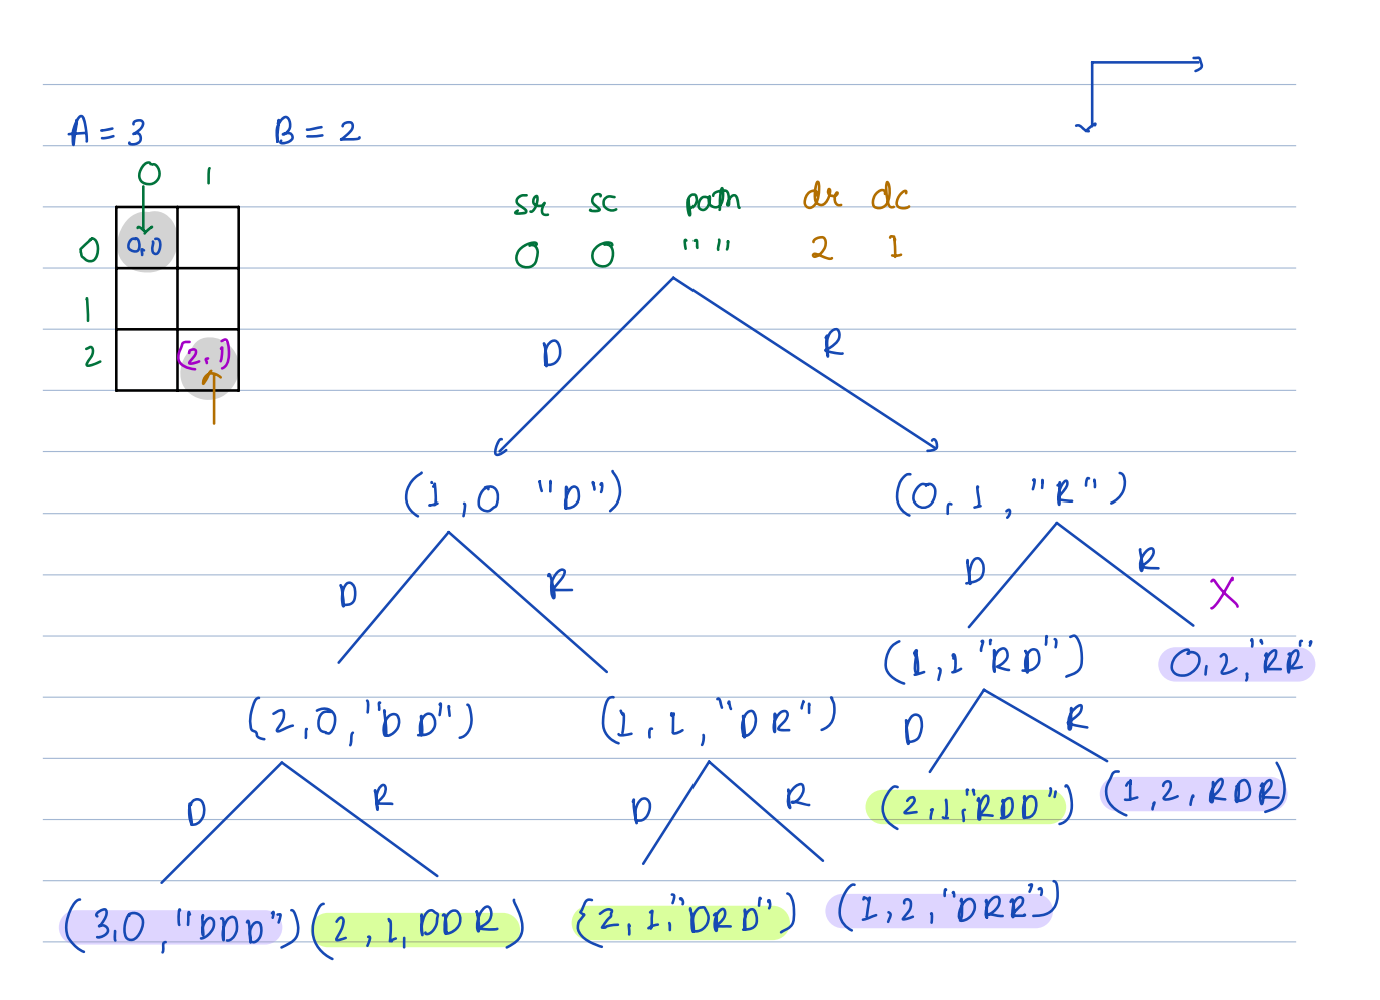 A = 3 B = 2
0 1
sr sc path dr dc
0 0,0 0 0 " " 2 1
1
2 (2,1)
D R
(1,0 "D") (0,1,"R")
D R D R X
(1,1"RD") 0,2,"RR"
(2,0,"DD") (1,1,"DR") D R
D R D R (2,1,"RDD") (1,2,RDR)
(3,0,"DDD") (2,1,DDR) {2,1,"DRD") (1,2,"DRR")